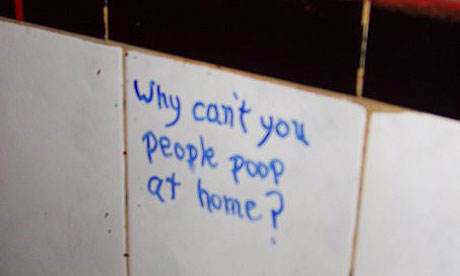 Why can't you
people poop
at home?